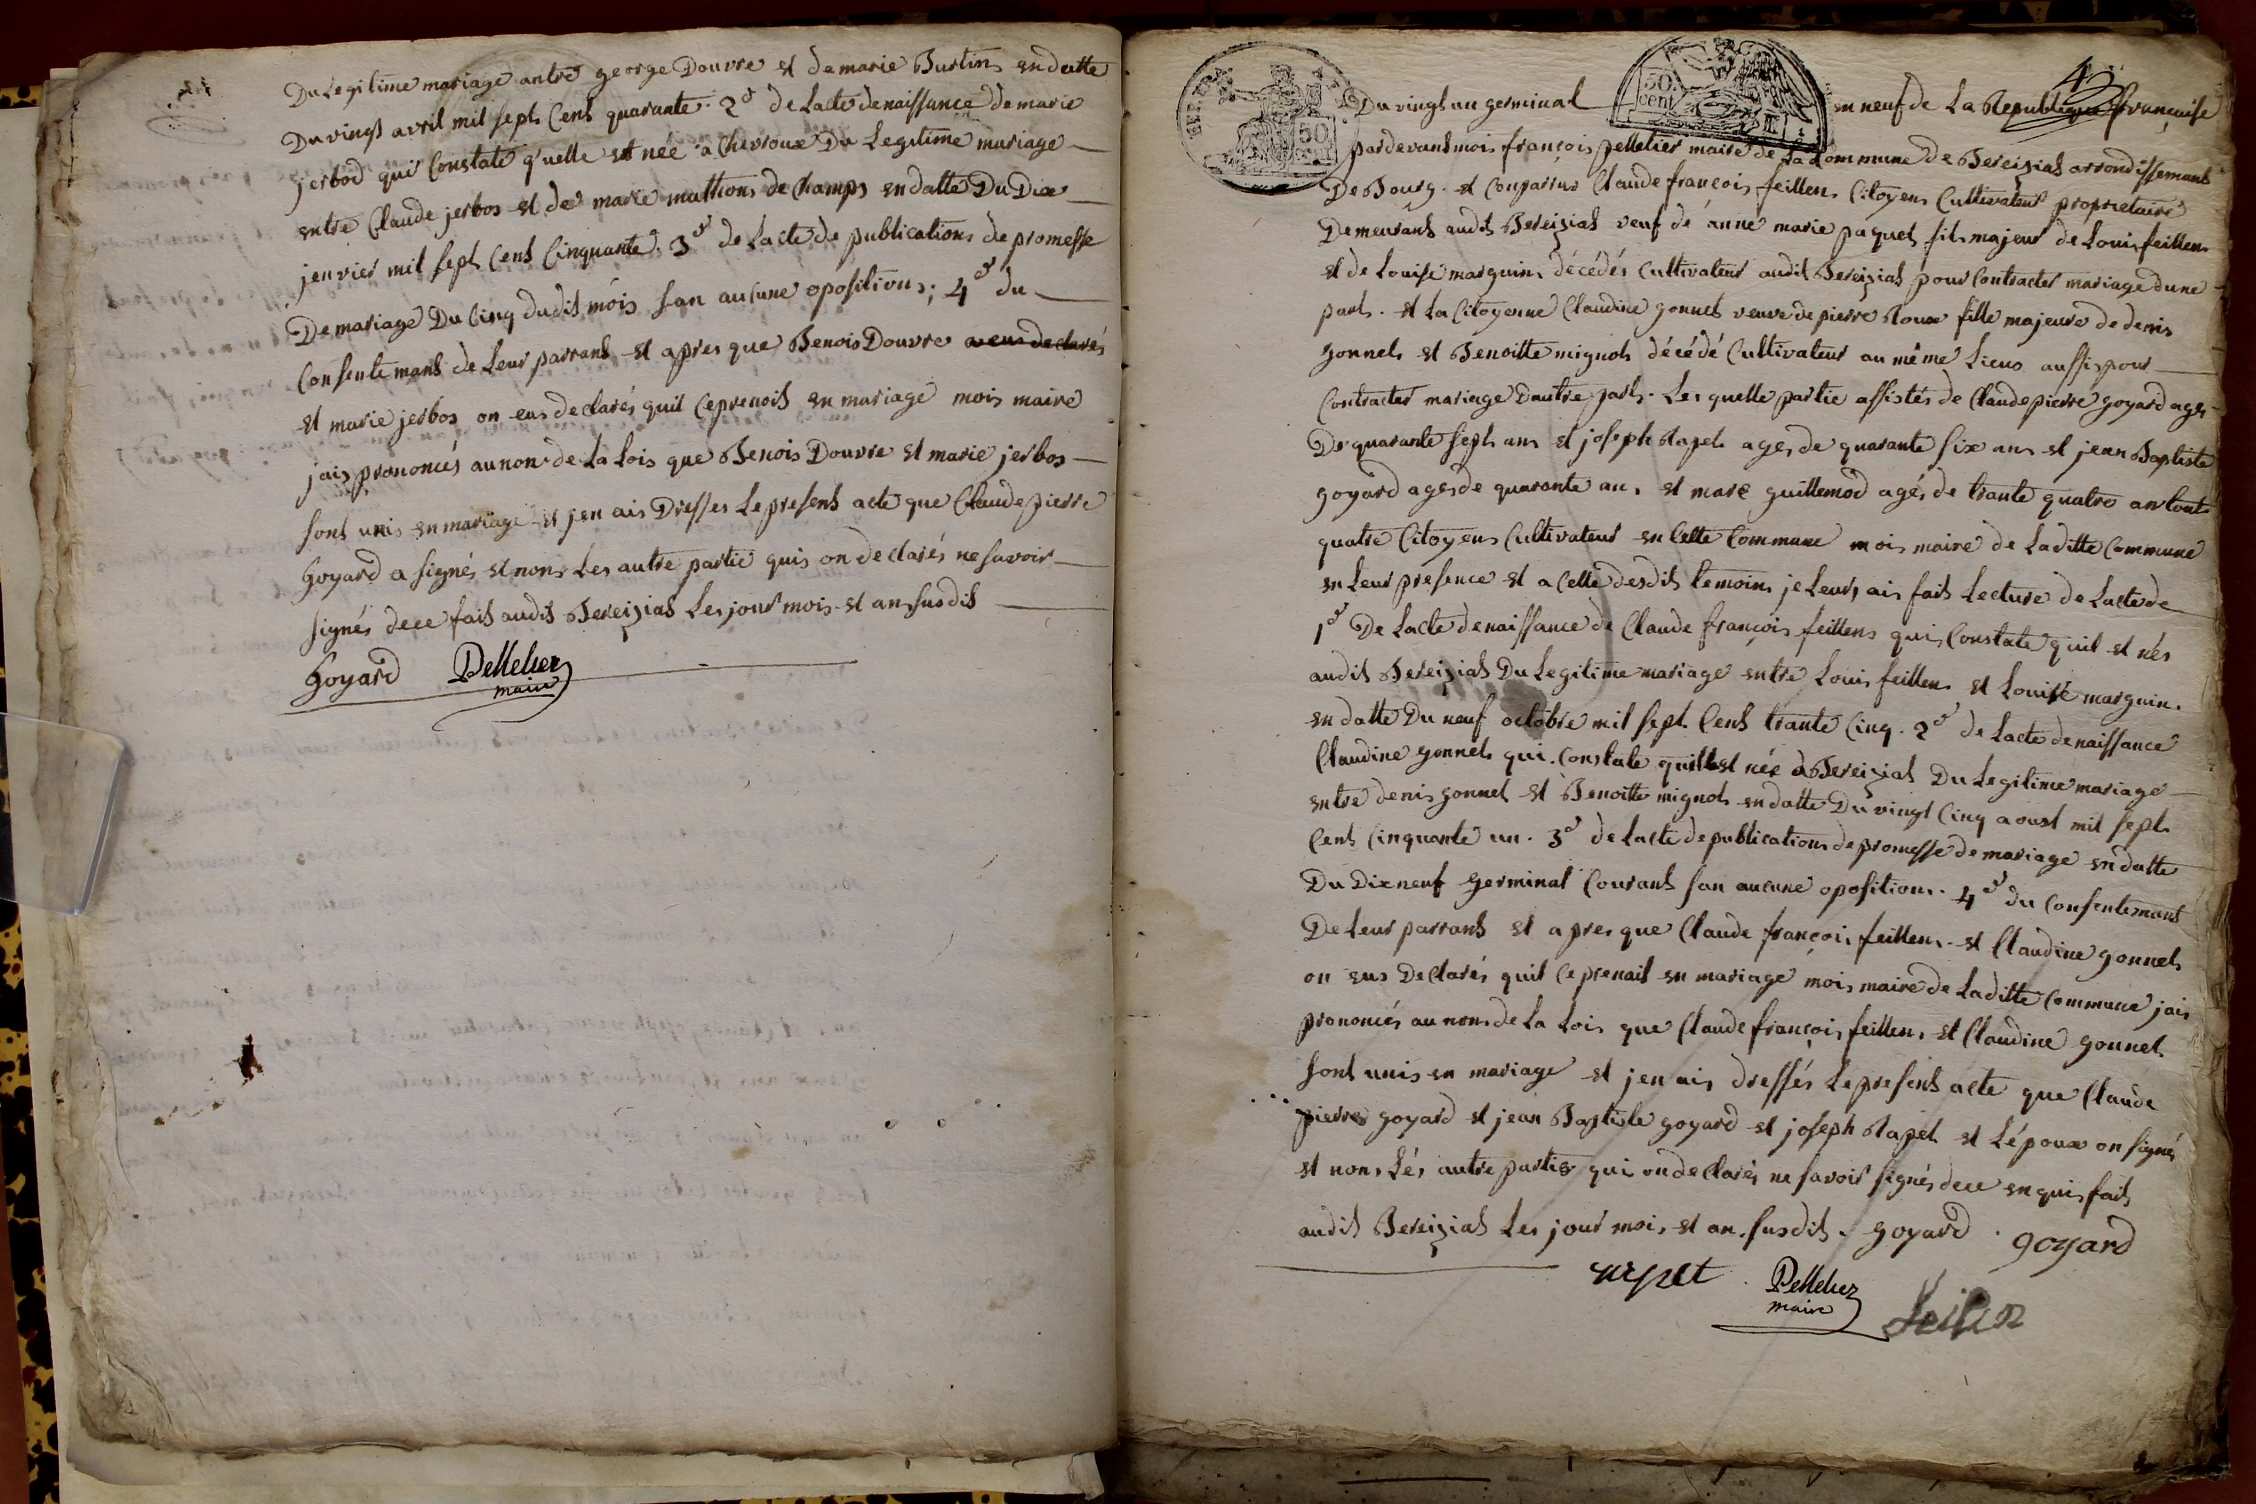 Du Legitime mariage antre george Douvre et de marie Burtin en datte
Du vingt avril mil sept Cent quarante. 2º de Lacte de naissance de marie
jerbod qui Constate quelle est née a Chevroux Du Legitime mariage
entre Claude jerbos et de marie mathion de Champs en datte Du Dix
jenvier mil sept Cent Cinquante. 3º de Lacte de publications de promesse
De mariage Du Cinq dudit mois san aucune opositions; 4º du
Consentemant de Leur parrant et apres que Benois Douvre a eus declarés
Et marie jerbos on eus declarés quil ceprenoit en mariage mois maire
jais prononcés au non de La Lois que Benois Douvre et marie jerbos
sont unis en mariage et jen ais Dresses Le present acte que Claude pierre
Goyard a signés et non Les autre partie quis on declarés ne savoir
signés de ce fait audit Bereiziat Les jour mois et an susdit
Goyard Pelletier
maire
4
50 cent
50
Du vingt un germinal en neuf de La Republique francaise
pardevant mois françois pelletier maire de La Commune de Bereiziat arrondissement
De Bourg. et Conparrus Claude françois feillens Citoyen Cultivateur proprietaire
Demeurant audit Bereiziat veuf de anne marie paquet fils majeur de Louis feillens
et de Louise marguin décédés Cultivateur audit Bereiziat pour Contracter mariage dune
part. et La Citoyenne Claudine gonnet veuve de pierre Roux fille majeure de denis
gonnet et Benoitte mignot décédé Cultivateur au même Lieus aussi pour
Contracter mariage Dautre part. Les quelle partie assistés de Claude pierre goyard ages
De quarante sept ans et joseph Rapet ages de quarante six ans et jean Baptiste
goyard ages de quarante an, et marc guillemod agés de trante quatre an tout
quatre Citoyens Cultivateur en Cette Commune mois maire de Laditte Commune
en Leur presence et a Celle desdit temoins je Leurs ais fait Lecture de Lacte de
1º De Lacte de naissance de Claude françois feillens qui Constate quil et nés
audit Bereiziat Du Legitime mariage entre Louis feillens et Louise marguin.
en datte Du neuf octobre mil sept Cent trante Cinq. 2º de Lacte de naissance
Claudine gonnet qui Constate quille est née a Bereiziat Du Legitime mariage
entre denis gonnet et Benoitte mignot en datte Du vingt Cinq aoust mil sept
Cent Cinquante un. 3º de Lacte de publications de promesse de mariage en datte
Du Dix neuf germinal Courant san aucune oposition. 4º du Consentemant
De Leur parrant et apres que Claude françois feillens et Claudine gonnet
on eus Declarés quil ceprenait en mariage mois maire de Laditte Commune jais
prononcés au nom de La Lois que Claude françois feillens et Claudine gonnet
sont unis en mariage et jen ais dressés Le present acte que Claude
pierre goyard et jean Baptiste goyard et joseph Rapet et Lépoux on signés
et nons Lés autre partie qui on declarés ne savoir signés de ce enquis fait
audit Bereiziat Les jour mois et an susdit. goyard . goyard
rapet . Pelletier
maire
feillen